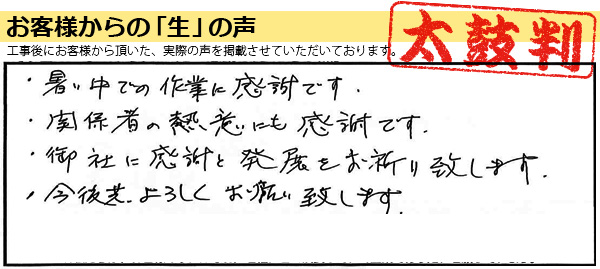 お客様からの「生」の声
工事後にお客様から頂いた、実際の声を掲載させていただいております。
太鼓判
・暑い中での作業に感謝です.
・関係者の熱意にも感謝です.
・御社に感謝と発展をお祈り致します.
・今後共.よろしくお願い致します.